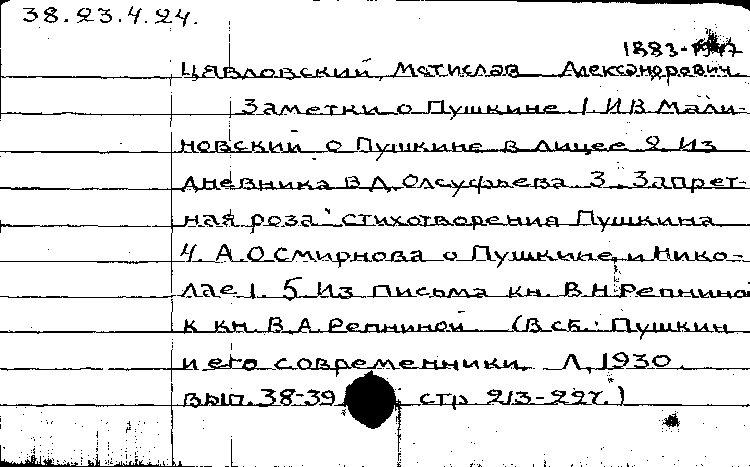 38.23.4.24.
1883-1947
Цявловский, Мстислав Александрович.
Заметки о Пушкине. 1. И.В. Мали-
новский о Пушкине в лицее 2. Из
дневника В.Д. Олсуфьева 3. Запрет-
ная роза стихотворения Пушкина
4. А.О Смирнова о Пушкине и Нико-
лае I. 5. Из письма кн. В.Н. Репниной
к кн. В.А. Репниной (В сб.: Пушкин
и его современники. Л, 1930.
вып. 38-39 стр 213-227.)